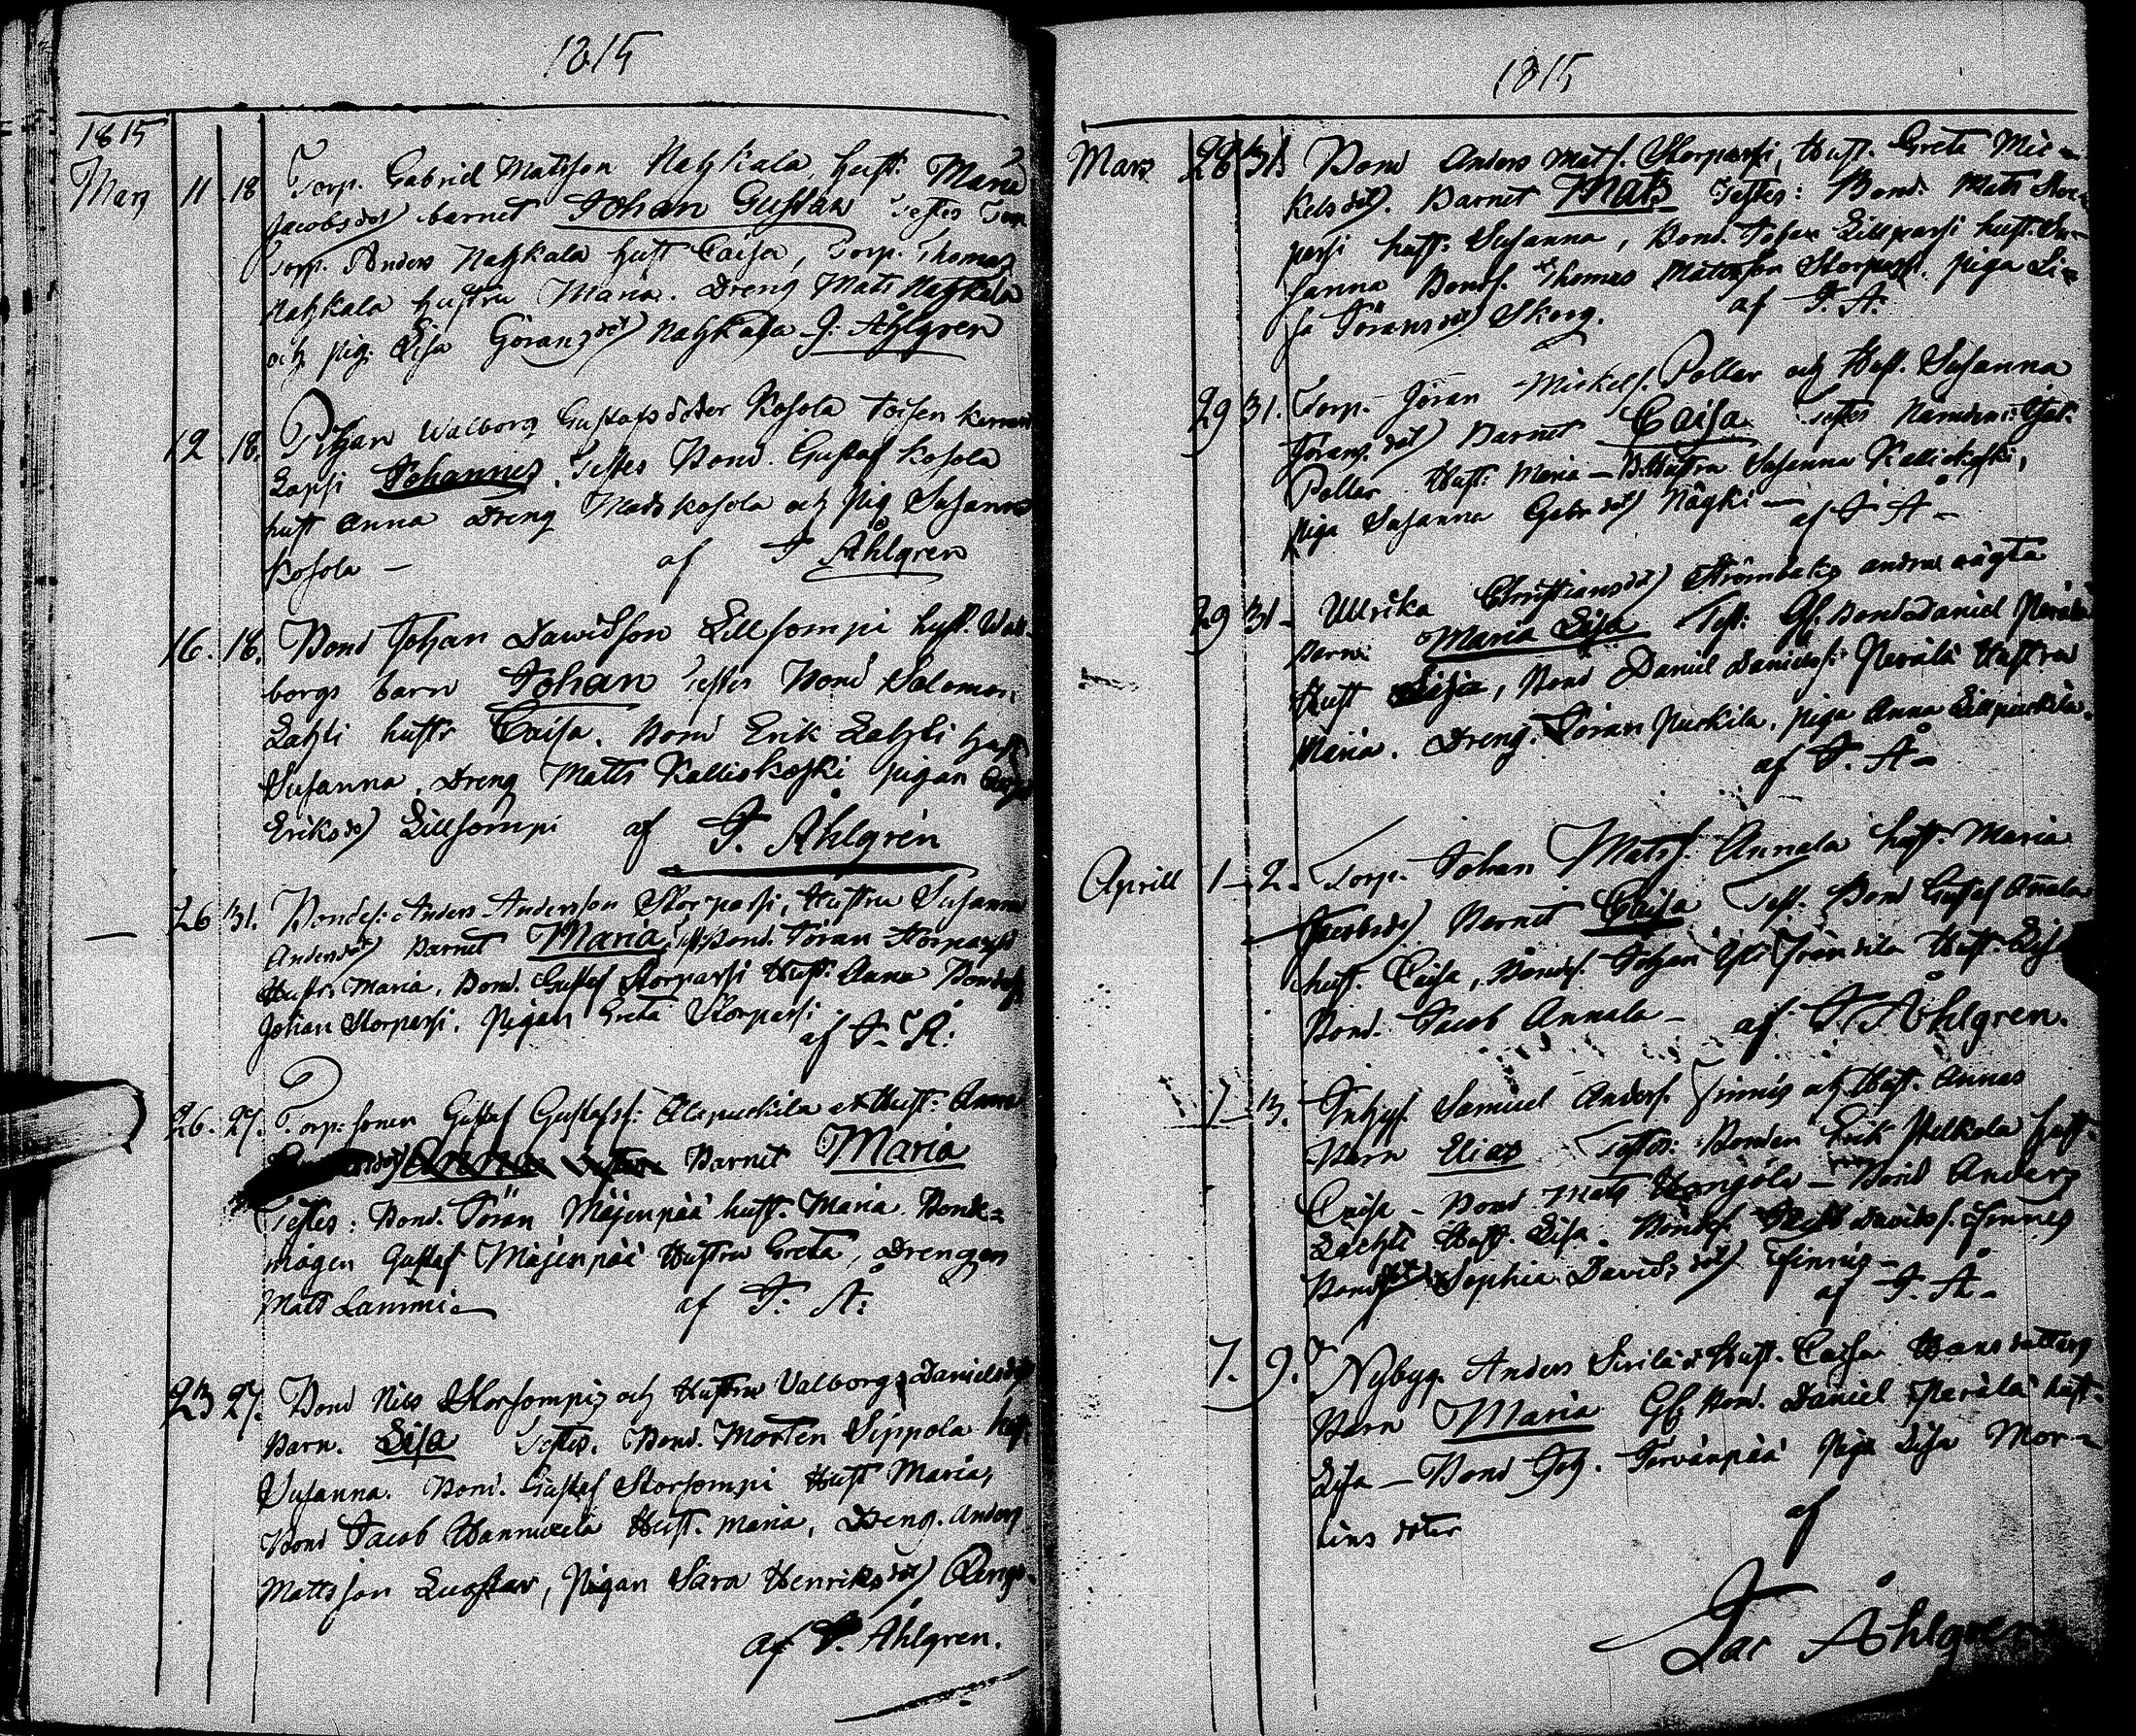 1815
1815
Marz 11 18 Torp. Gabriel Matsson Nahkala, hust. Maria
Jacobsdot barnet Johan Gustaw Testes
Torp. Anders Nahkala hust Caisa, Torp. Thomas
Nahkala hustru Maria. Dreng Mats Nahkala
och pig. Lisa Göransdot Nahkala J. Åhlgren
12 18. Pigan Walborg Gustafsdoter Kosola toisen kerran
Lapsi Johannes. Testes Bond. Gustaf Kosola
hust Anna Dreng Mats Kosola och Pig Susanna
Kosola — af J Åhlgren
16. 18. Bond Johan Dawidson Lillsompi hust. Wal-
borgs barn Johan Testes Bond Salomon
Lahti hustr Caisa. Bond Erik Lahti hust
Susanna, Dreng Matts Kallioskoski pigan
Eriksd Lillsompi af J. Åhlgren
26 31. Bondes. Anders Andersson Storpassi, Hustru Susanna
Andersdot Barnet Maria Test. Bond. Jöran Storpassi
Hustr. Maria, Bond. Gustaf Storpassi Hust. Anna Bondes
Johan Storpassi. Pigan Greta Storpassi
af J. Å.
26. 27. Torp. sonen Gustaf Gustafss. Alapuckila et Hust. Anna
Barnet Maria
Testes: Bond. Jöran Mäjenpää hust. Maria Bonde-
mågen Gustaf Mäjenpää Hustru Greta, Drengen
Matts Lammi — af J. Å.
23 27. Bond Nils Storsompi och Hustru Valborg Danielsdot
Barn. Lisa Testes. Bond. Morten Sippola hust
Susanna. Bond. Gustaf Storsompi Hust Maria,
Bond Jacob Hannuxela Hust. Maria, Dreng. Anders
Mattsson Luostar, Pigan Sara Henriksdot
af J. Åhlgren.
1815
Mars 28 31. Bond Anders Mats. Storpassi, Hust. Greta Mic-
kelsdot. Barnet Mats Testes: Bond. Mats Stor-
passi hust: Susanna, Bond. Johan Lillpassi hust. Su-
sanna Bonds. Thomas Matsson Storpassi. piga Li-
sa Jöransdot Skog. af J. Å.
29 31. Torp. Jöran Mickels. Pollar och Hust. Susanna
Jörans.dot Barnet Caisa Testes
Pollar Hust: Maria — B. Hustru Susanna Kalliokoski,
piga Susanna Gabr.dot Någki — af J Å —
29 31 Ullrika Christiansdot Strömbäks andra oägta
Barn: Maria Lisa Test: Gl. Bond Daniel Perälä
Hust Lisa, Bond Daniel Daniels. Perälä Hustru
Maria. Dreng. Jöran Puckila, piga Anna Lillpuckila.
af J. Å —
Aprill 1 2. Torp. Johan Mats. Annala hust. Maria
Barnet Caisa Test. Bond Gustaf Annala
hust. Caisa, Bondes. Johan Hust. Lisa
Bond. Jacob Annala — af J. Åhlgren.
7 13. Inhys. Samuel Anders. Finnis och Hust. Annas
Barn Elias Testes: Bonden Erik Pelkola hust.
Caisa — Bond Mats — Bond Anders
Lachti Hust. Lisa. Bondes. Davids. Finnes
Sophia Davids.dot Finnis —
af J. Å —
7. 9. Nybyg. Anders Sirilä et Hust. Caisa Hansdatters
Barn Maria Gl Bond. Daniel Perälä hust.
Lisa — Bond Joh. Törvänpää Piga Lisa Mor-
tins doter
af
Jac Åhlgren